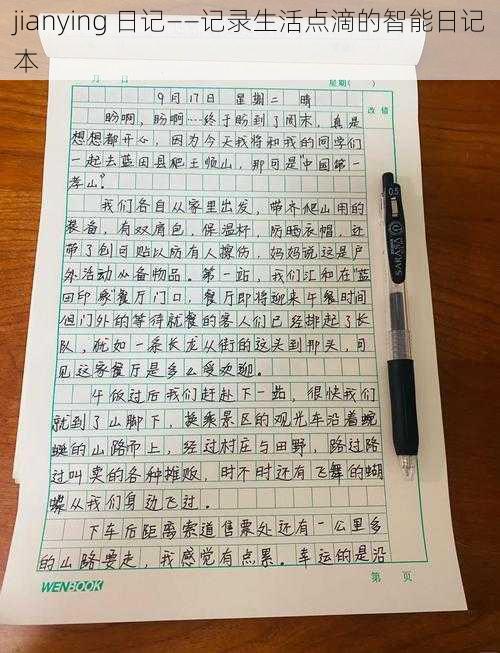 jianying 日记——记录生活点滴的智能日记
本
月 日 星期( )
9月17日 星期二 晴
改错
盼啊，盼啊……终于盼到了周末，真是
想想都开心，因为今天我将和我的同学们
一起去蓝田县爬王顺山，那可是“中国第一
孝山”
我们各自从家里出发，带齐爬山用的
装备，有双肩包，保温杯，防晒衣帽，还
带了创可贴以防有人擦伤，妈妈说这是户
外活动必备物品。第一站，我们汇和在“蓝
田印象”餐厅门口，餐厅即将迎来午餐时间
但门外的等待就餐的客人们已经排起了长
队，就如一条长龙从街的这头到那头，可
见这家餐厅是多么受欢迎。
午饭过后我们赶赴下一站，很快我们
就到了山脚下，换乘景区的观光车沿着蜿
蜒的山路而上，经过村庄与田野，路过路
过叫卖的各种摊贩，时不时还有飞舞的蝴
蝶从我们身边飞过。
下车后距离索道售票处还有一公里多
的山路要走，我感觉有点累。幸运的是沿
WENBOOK
第 页
0.5
SARASA